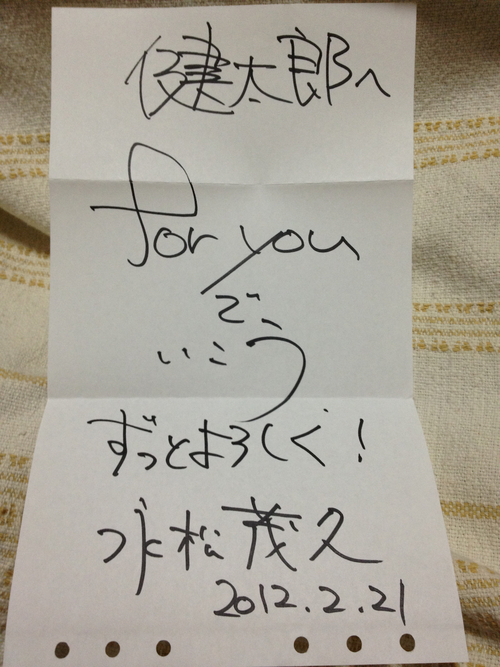 健太郎へ
for you
で、
いこう
ずっとよろしく!
永松茂久
2012.2.21